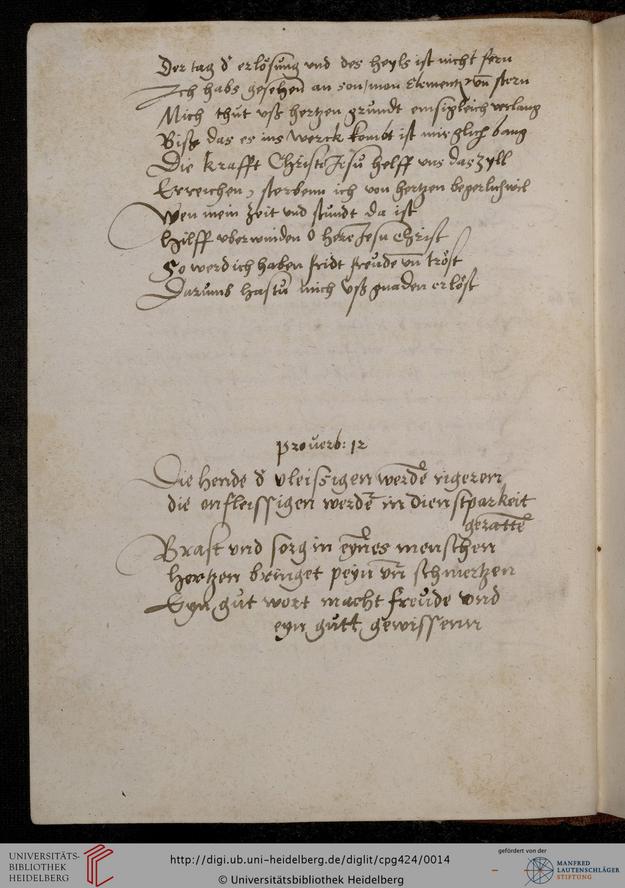 Der tag d' erlösung und des heyls ist nicht fern
Ich habs gesehen an son, mon Element, vn̄ stern
Mich thut vß hertzen grundt einsigleich verlang
Biß das es ins werck kombt ist mir glich bang
Die krafft Christe Jesu helff vns das zyll
Erreichen, sterbenn ich von hertzen begerlich wil
Wen mein zeit vnd stundt da ist
Hilff vberwinden ô here Jesu Christ
So werd ich haben fridt freude vn̄ tröst
Darumb hastu mich vß gnaden erlöst
proverb: 12
Die hende d' vleissigen werdē rigeren
die onfleissigen werdē in dienstparkeit
gerattē
Brast vnd sorg in eynes menschen
hertzen bringet peyn vn̄ schmertzen
Eyn gut wort macht freude vnd
eyn gutt gewissenn
UNIVERSITÄTS-
BIBLIOTHEK
HEIDELBERG
http://digi.ub.uni-heidelberg.de/diglit/cpg424/0014
© Universitätsbibliothek Heidelberg
gefördert von der
MANFRED
LAUTENSCHLÄGER
STIFTUNG